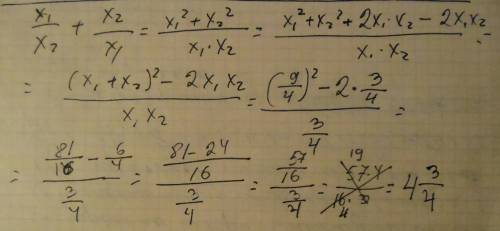 x₁/x₂ + x₂/x₁ = (x₁² + x₂²)/(x₁ · x₂) = (x₁² + x₂² + 2x₁ · x₂ − 2x₁x₂)/(x₁ · x₂) =
= ((x₁ + x₂)² − 2x₁x₂)/(x₁x₂) = ((9/4)² − 2 · 3/4)/(3/4) =
= (81/16 − 6/4)/(3/4) = ((81 − 24)/16)/(3/4) = (57/16)/(3/4) = (57 · 4)/(16 · 3) 19 4 = 4 3/4